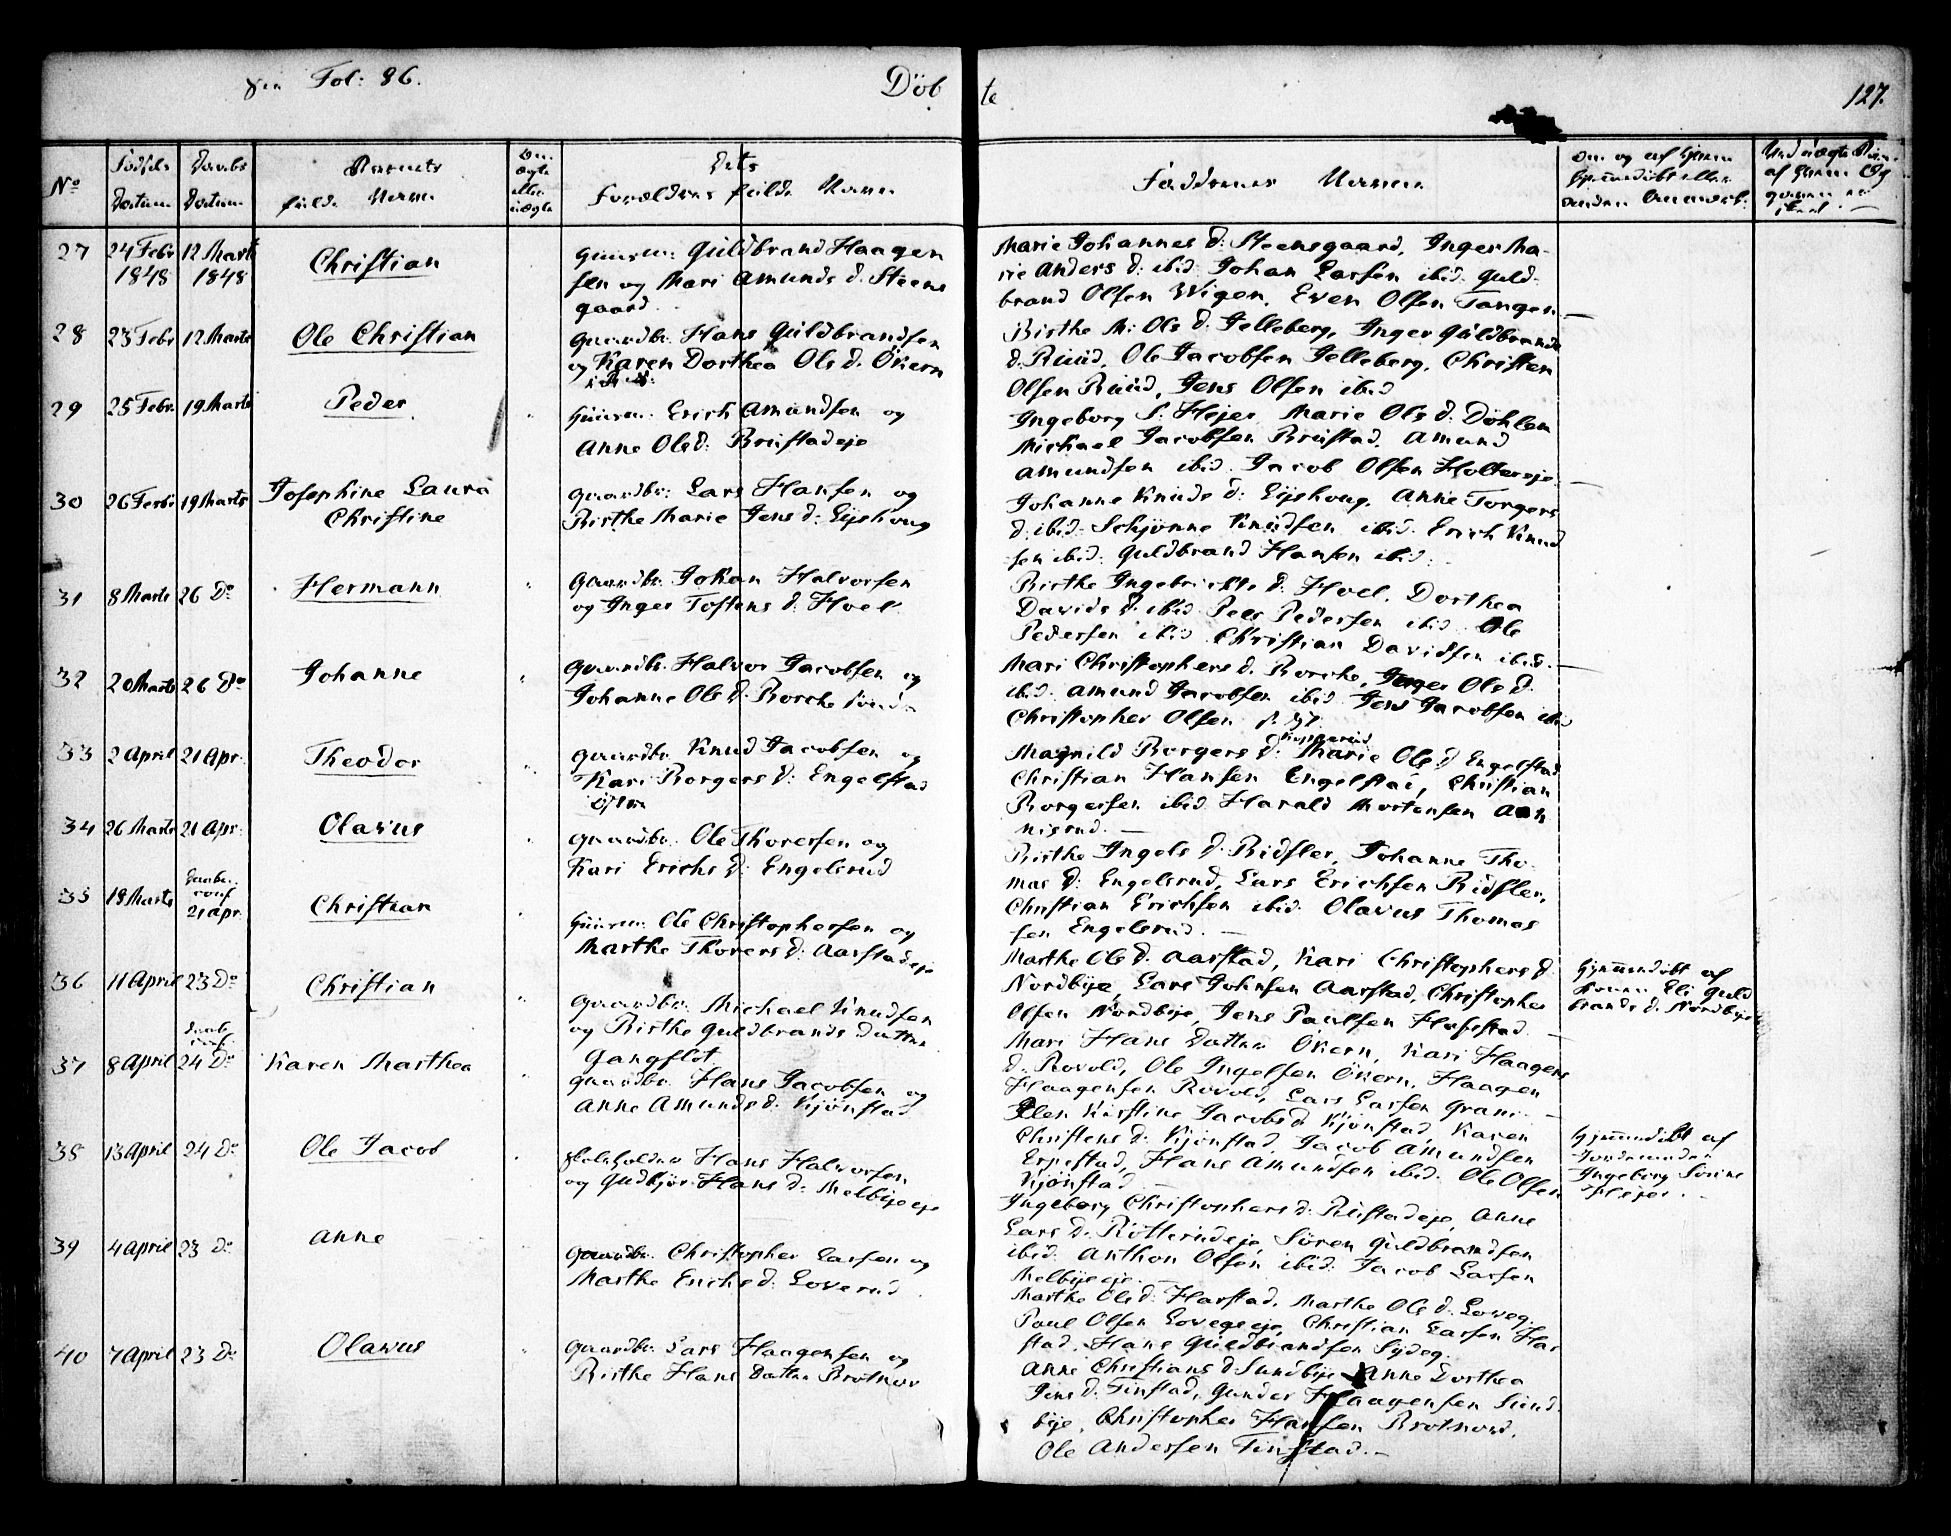 Fra Fol: 86.
Döb te
127.
No
Fødsels Datum
Daabs Datum
Barnets fulde Navn
Om ægte eller uægte
Dets Forældres fulde Navn
Faddernes Navne
Om og af hvem hjemmedøbt eller anden Anmærk:
27
24 Febr 1848
12 Marts 1848
Christian
Huusm: Guldbrand Haagen
sen og Mari Amunds d. Steens
gaard.
Marie Johannes d: Steensgaard, Inger Ma-
rie Anders d: ibid. Johan Larsen ibid. Guld-
brand Olsen Wigen, Even Olsen Tangen.—
28
23 Febr
12 Marts
Ole Christian
Gaardbr. Hans Guldbrandsen
og Karen Dorthea Ols d. Økern
Birthe M: Ols d. Jelleberg, Inger Guldbrands
d. Ruud, Ole Jacobsen Jelleberg, Christen
Olsen Ruud, Jens Olsen ibid
29
25 Febr.
19 Marts
Peder
Huusm: Erich Amundsen og
Anne Ols d: Brustadeje
Ingeborg S. Hejer, Marie Ols d: Döhlen
Michael Jacobsen Brustad, Amund
Amundsen ibid. Jacob Olsen Holtereje.—
30
26 Febr
19 Marts
Josephine Laura
Christine
Gaardbr: Lars Hansen og
Birthe Marie Jens d: Ejshoug
Johanne Knuds d: Ejshoug, Anne Torgers
d. ibid. Schjönne Knudsen ibid. Erich Knud
sen ibid: Guldbrand Hansen ibid.
31
8 Marts
26 Do
Hermann
Gaardbr. Johan Halvorsen
og Inger Tostens d: Hoel.
Birthe Ingebrichts d: Hoel. Dorthea
Davids d: ibid. Peer Pedersen ibid. Ole
Pedersen ibid. Christian Davidsen ibid.—
32
20 Marts
26 Do
Johanne
Gaardbr. Halvor Jacobsen og
Johanne Ols d. Borche
Mari Christophers d. Borche, Inger Ols d.
ibid. Amund Jacobsen ibid. Jens Jacobsen ibid
Christopher Olsen
33
2 April
21 Apr.
Theodor
Gaardbr. Knud Jacobsen og
Kari Borgers d: Engelstad
Magnild Borgers d: Marie Ols d Engelstad
Christian Hansen Engelstad, Christian
Borgersen ibid. Harald Mortensen Aas
nisrud.—
34
26 Marts
21 Apr.
Olavus
Gaardbr. Ole Thoresen og
Kari Erichs d: Engelsrud
Birthe Ingels d. Ridsler, Johanne Tho
mas d: Engelsrud, Lars Erichsen Ridsler,
Christian Erichsen ibid. Olavus Thomas
sen Engelsrud.—
35
18 Marts
21 Apr.
Christian
Huusm: Ole Christophersen og
Marthe Thorers d: Aarstadeje
Marthe Ols d. Aarstad, Kari Christophers d.
Nordbye, Lars Johnsen Aarstad, Christopher
Olsen Nordbye, Jens Paulsen Hafstad.
36
11 April
23 Do
Christian
Gaardbr. Michael Knudsen
og Birthe Guldbrands Datter
Gangflot
Mari Hans Datter Økern, Kari Haagens
d. Rovold, Ole Ingelsen Økern, Haagen
Haagensen Rovold, Lars Larsen Gran.—
Hjemmedöbt af
Konen Eli Guld
brands d. Nordbye
37
8 April
24 Do
Karen Marthea
Gaardbr. Hans Jacobsen og
Anne Amunds d. Kjönstad
Ellen Kirstine Jacobs d Kjönstad, Karen
Christens d: Kjönstad, Jacob Amundsen
Erpestad, Hans Amundsen ibid. Ole Olsen
Kjönstad.—
38
13 April
24 Do
Ole Jacob
Hans Halvorsen
og Gudbjör Hans d: Melbyeeje
Ingeborg Christophers d. Rustadeje, Anne
Lars d. Rotterudeje, Sören Guldbrandsen
ibid. Anthon Olsen ibid. Jacob Larsen
Melbyeeje.—
Hjemmedöbt af
Jordemoder
Ingeborg Sörine
Hejer.—
39
4 April
23 Do
Anne
Gaardbr. Christopher Larsen og
Marthe Erichs d. Loverud
Marthe Ols d: Harstad, Marthe Ols d. Loveg.
Paul Olsen Lovegeje, Christian Larsen Har
stad, Hans Guldbrandsen Sydeg.
40
7 April
23 Do
Olavus
Gaardbr. Lars Haagensen og
Birthe Hans Datter Brotnov
Anne Christians d. Sundbye, Anne Dorthea
Jens d. Finstad, Gunder Haagensen Sund
bye, Christopher Hansen Brotnord.
Ole Andersen Finstad.—